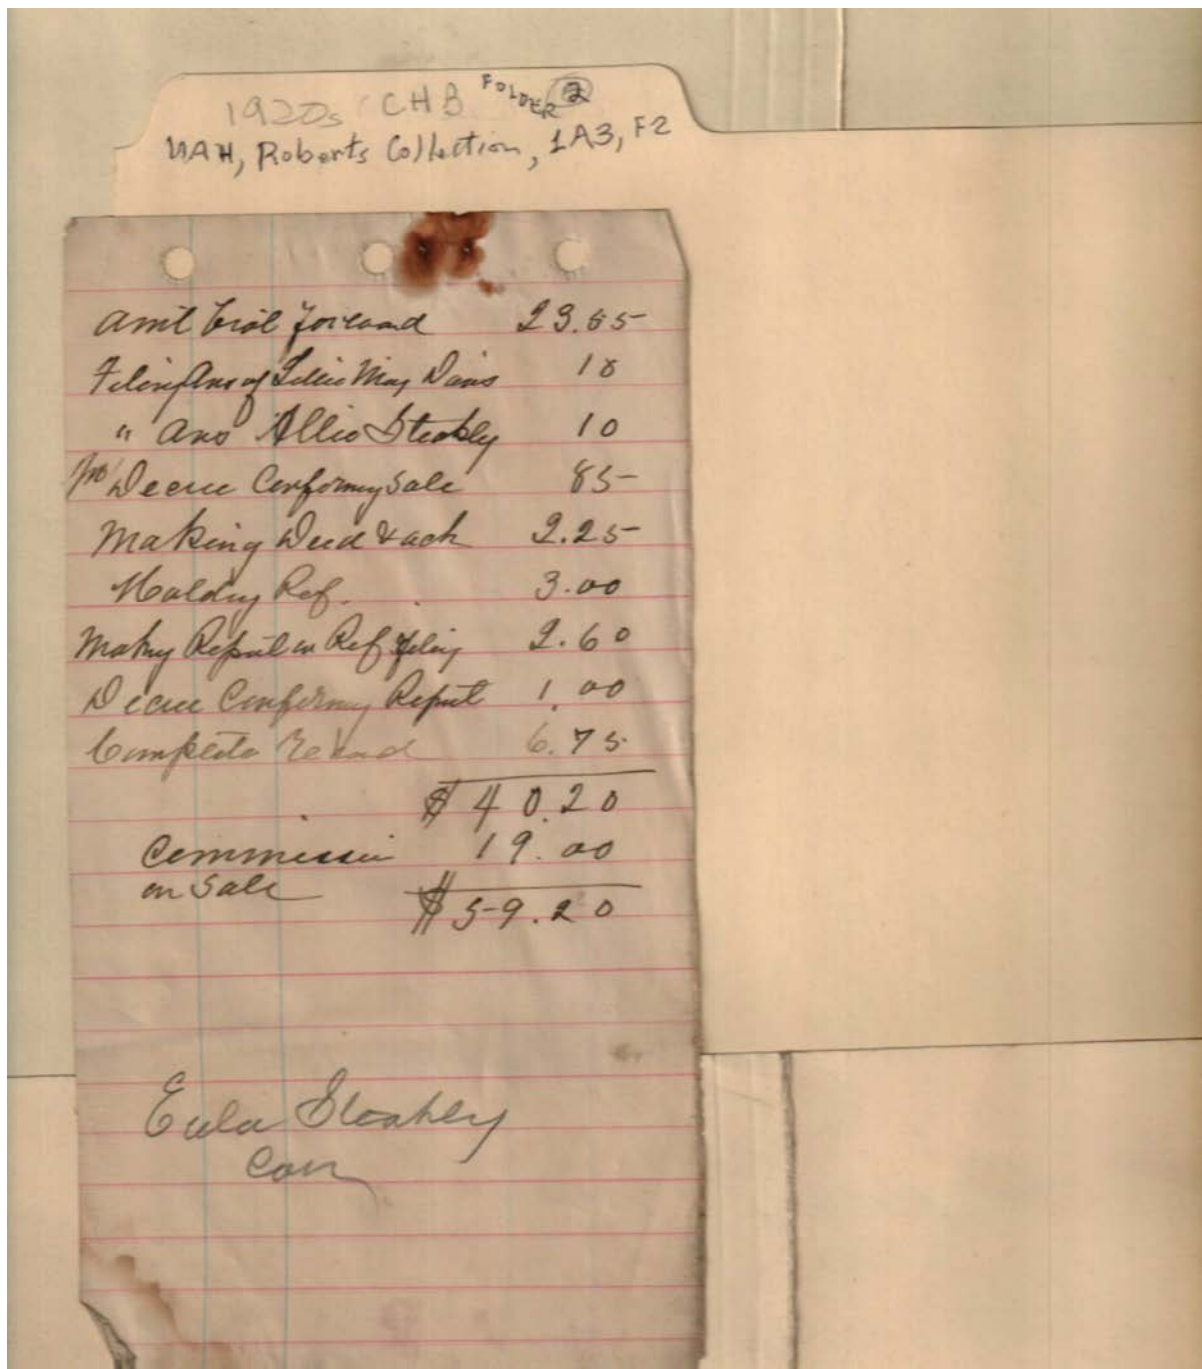 1920s CHB FOLDER 2
UAH, Roberts Collection, 1A3, F2
Amt Brot forward 23.55
Filing Ans of Lillie May Davis 10
" Ans Allie Steakly 10
Decree Confirming Sale 85
Making Deed & ack 2.25
Holding Ref. 3.00
Making Report on Ref & filing 2.60
Decree Confirming Report 1.00
Complete Record 6.75
$40.20
Commission 19.00
on Sale
$59.20
Eula Steakley